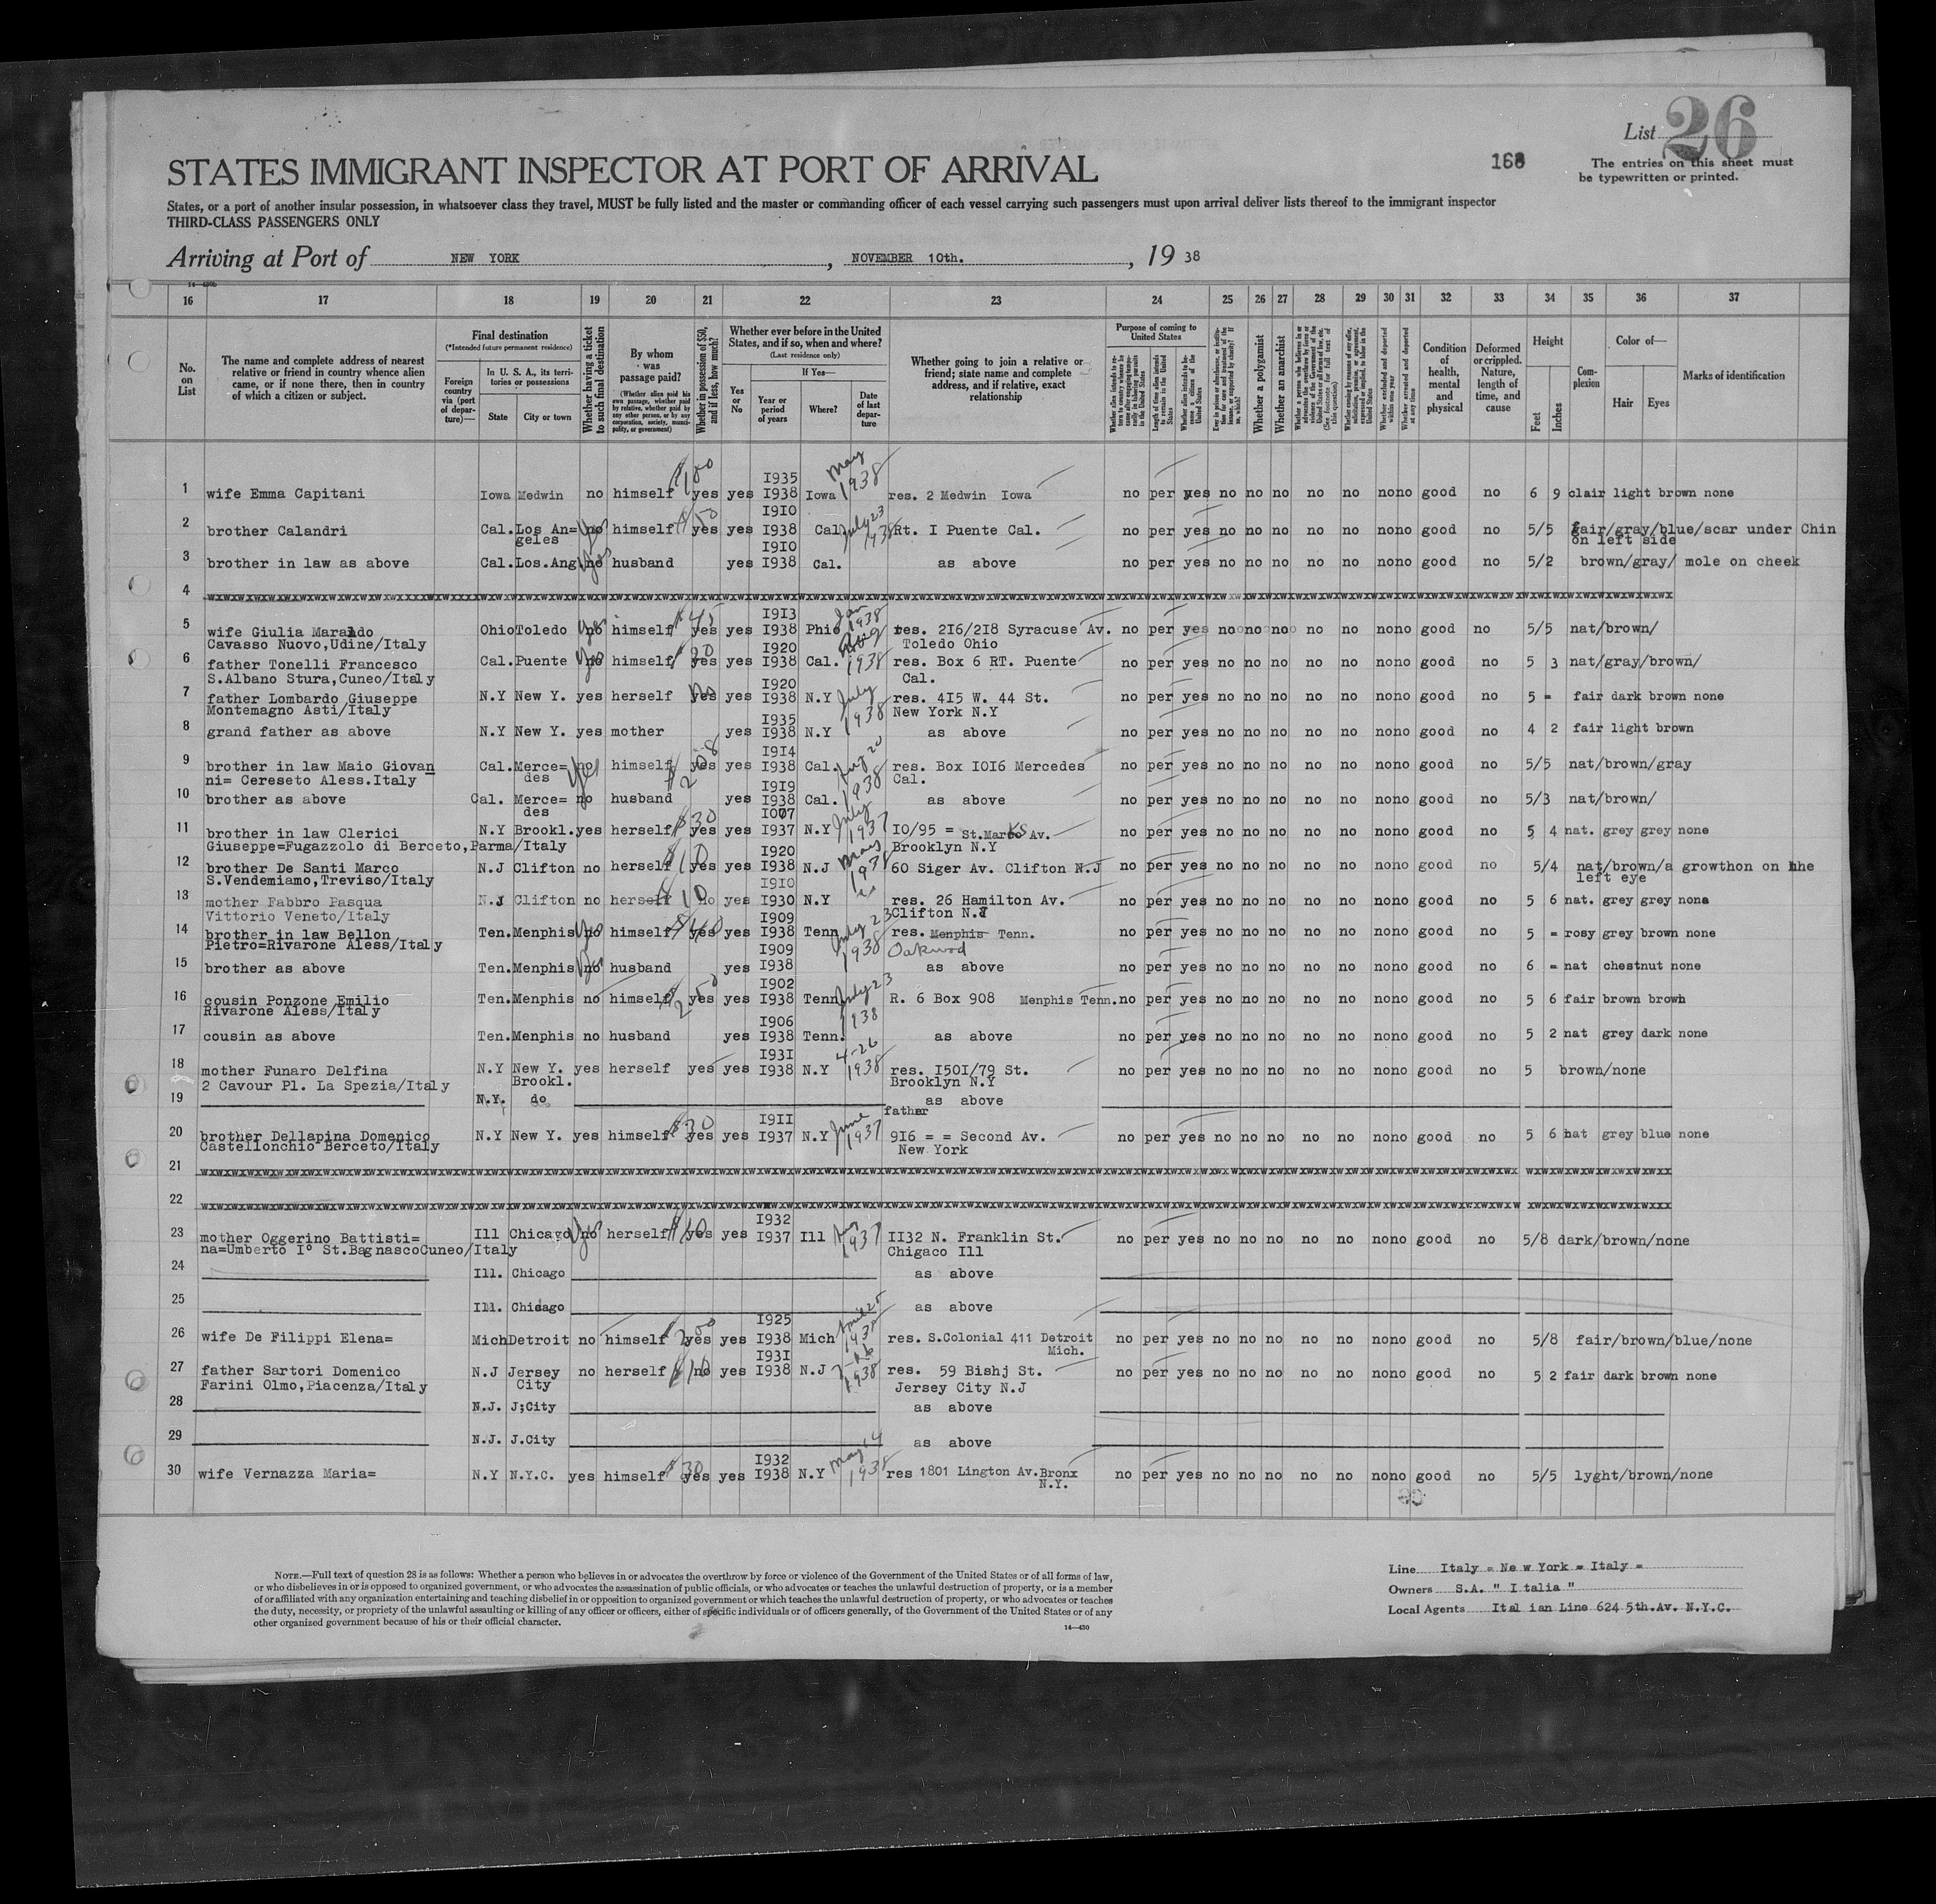 List 26
168
The entries on this sheet must
be typewritten or printed.
STATES IMMIGRANT INSPECTOR AT PORT OF ARRIVAL
States, or a port of another insular possession, in whatsoever class they travel, MUST be fully listed and the master or commanding officer of each vessel carrying such passengers must upon arrival deliver lists thereof to the immigrant inspector
THIRD-CLASS PASSENGERS ONLY
Arriving at Port of NEW YORK, NOVEMBER 10th., 19 38
16 17 18 19 20 21 22 23 24 25 26 27 28 29 30 31 32 33 34 35 36 37
No. on List
The name and complete address of nearest relative or friend in country whence alien came, or if none there, then in country of which a citizen or subject.
Final destination
(*Intended future permanent residence)
Foreign country via (port of departure)—
In U. S. A., its territories or possessions
State
City or town
Whether having a ticket to such final destination
By whom was passage paid?
(Whether alien paid his own passage, whether paid by relative, whether paid by any other person, or by any corporation, society, municipality, or government)
Whether in possession of $50, and if less, how much?
Whether ever before in the United States, and if so, when and where?
(Last residence only)
Yes or No
If Yes—
Year or period of years
Where?
Date of last departure
Whether going to join a relative or friend; state name and complete address, and if relative, exact relationship
Purpose of coming to United States
Length of time alien intends to remain in the United States
Whether alien intends to become a citizen of the United States
Whether a polygamist
Whether an anarchist
Whether arrested and deported at any time
Condition of health, mental and physical
Deformed or crippled. Nature, length of time, and cause
Height
Feet
Inches
Complexion
Color of—
Hair
Eyes
Marks of identification
1 wife Emma Capitani Iowa Medwin no himself $100 yes yes I935 I938 Iowa May 1938 res. 2 Medwin Iowa no per yes no no no no no no no good no 6 9 clair light brown none
2 brother Calandri Cal. Los An= geles no yes himself $50 yes yes I9I0 I938 Cal. July 23 1938 Rt. I Puente Cal. no per yes no no no no no no no good no 5/5 fair/gray/blue/scar under Chin on left side
3 brother in law as above Cal. Los.Ang. no yes husband yes I9I0 I938 Cal. as above no per yes no no no no no no no good no 5/2 brown/gray/ mole on cheek
4
5 wife Giulia Maraldo Cavasso Nuovo,Udine/Italy Ohio Toledo no yes himself $45 yes yes I9I3 I938 Phio Jan 1938 res. 2I6/2I8 Syracuse Av. Toledo Ohio no per yes no no no no no no no good no 5/5 nat/brown/
6 father Tonelli Francesco S.Albano Stura,Cuneo/Italy Cal. Puente no yes himself yes yes I920 I938 Cal. 1938 res. Box 6 RT. Puente Cal. no per yes no no no no no no no good no 5 3 nat/gray/brown/
7 father Lombardo Giuseppe Montemagno Asti/Italy N.Y New Y. yes herself yes no yes I920 I938 N.Y July 1938 res. 4I5 W. 44 St. New York N.Y no per yes no no no no no no no good no 5 = fair dark brown none
8 grand father as above N.Y New Y. yes mother yes I935 I938 N.Y as above no per yes no no no no no no no good no 4 2 fair light brown
9 brother in law Maio Giovan ni= Cereseto Aless.Italy Cal. Merce= des no yes himself yes yes I9I4 I938 Cal. Aug 20 1938 res. Box I0I6 Mercedes Cal. no per yes no no no no no no no good no 5/5 nat/brown/gray
10 brother as above Cal. Merce= des no husband yes I9I9 I938 Cal. as above no per yes no no no no no no no good no 5/3 nat/brown/
11 brother in law Clerici Giuseppe=Fugazzolo di Berceto,Parma/Italy N.Y Brookl. yes herself $30 yes yes I007 I937 N.Y July 1937 I0/95 = St.Marks Av. Brooklyn N.Y no per yes no no no no no no no good no 5 4 nat. grey grey none
12 brother De Santi Marco S.Vendemiamo,Treviso/Italy N.J Clifton no herself $10 yes yes I920 I938 N.J May 1938 60 Siger Av. Clifton N.J no per yes no no no no no no no good no 5/4 nat/brown/a growthon on hhe left eye
13 mother Fabbro Pasqua Vittorio Veneto/Italy N.J Clifton no herself $10 no yes I9I0 I930 N.Y res. 26 Hamilton Av. Clifton N.J no per yes no no no no no no no good no 5 6 nat. grey grey none
14 brother in law Bellon Pietro=Rivarone Aless/Italy Ten. Memphis no yes himself yes yes I909 I938 Tenn July 23 1938 res. Memphis Tenn. Oakwood no per yes no no no no no no no good no 5 = rosy grey brown none
15 brother as above Ten. Memphis no yes husband yes I909 I938 as above no per yes no no no no no no no good no 6 = nat chestnut none
16 cousin Ponzone Emilio Rivarone Aless/Italy Ten. Memphis no himself $250 yes yes I902 I938 Tenn July 23 1938 R. 6 Box 908 Memphis Tenn. no per yes no no no no no no no good no 5 6 fair brown brown
17 cousin as above Ten. Memphis no husband yes I906 I938 Tenn. as above no per yes no no no no no no no good no 5 2 nat grey dark none
18 mother Funaro Delfina 2 Cavour Pl. La Spezia/Italy N.Y New Y. Brookl. yes herself yes yes I93I I938 N.Y 4-26 1938 res. I50I/79 St. Brooklyn N.Y no per yes no no no no no no no good no 5 brown/none
19 N.Y. do as above father
20 brother Dellapina Domenico Castellonchio Berceto/Italy N.Y New Y. yes himself $30 yes yes I9II I937 N.Y June 1937 9I6 = = Second Av. New York no per yes no no no no no no no good no 5 6 nat grey blue none
21
22
23 mother Oggerino Battisti= na=Umberto I° St.BagnascoCuneo/Italy Ill Chicago no yes herself yes yes I932 I937 Ill 1937 II32 N. Franklin St. Chigaco Ill no per yes no no no no no no no good no 5/8 dark/brown/none
24 Ill. Chicago as above
25 Ill. Chicago as above
26 wife De Filippi Elena= Mich Detroit no himself yes yes I925 I938 Mich April 25 1938 res. S.Colonial 411 Detroit Mich. no per yes no no no no no no no good no 5/8 fair/brown/blue/none
27 father Sartori Domenico Farini Olmo,Piacenza/Italy N.J Jersey City no herself $10 no yes I93I I938 N.J 1938 res. 59 Bishj St. Jersey City N.J no per yes no no no no no no no good no 5 2 fair dark brown none
28 N.J. J;City as above
29 N.J. J.City as above
30 wife Vernazza Maria= N.Y N.Y.C. yes himself $30 yes yes I932 I938 N.Y May 14 1938 res 1801 Lington Av.Bronx N.Y. no per yes no no no no no no no good no 5/5 lyght/brown/none
NOTE.—Full text of question 28 is as follows: Whether a person who believes in or advocates the overthrow by force or violence of the Government of the United States or of all forms of law,
or who disbelieves in or is opposed to organized government, or who advocates the assassination of public officials, or who advocates or teaches the unlawful destruction of property, or is a member
of or affiliated with any organization entertaining and teaching disbelief in or opposition to organized government or which teaches the unlawful destruction of property, or who advocates or teaches
the duty, necessity, or propriety of the unlawful assaulting or killing of any officer or officers, either of specific individuals or of officers generally, of the Government of the United States or of any
other organized government because of his or their official character.
14—430
Line Italy = New York = Italy =
Owners S.A. " Italia "
Local Agents Italian Line 624 5th.Av. N.Y.C.